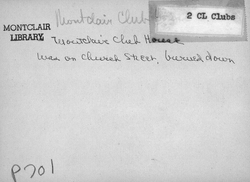 Montclair Club
2 CL Clubs
MONTCLAIR
LIBRARY
Montclair Club House
was on Church Street, burned down
P701